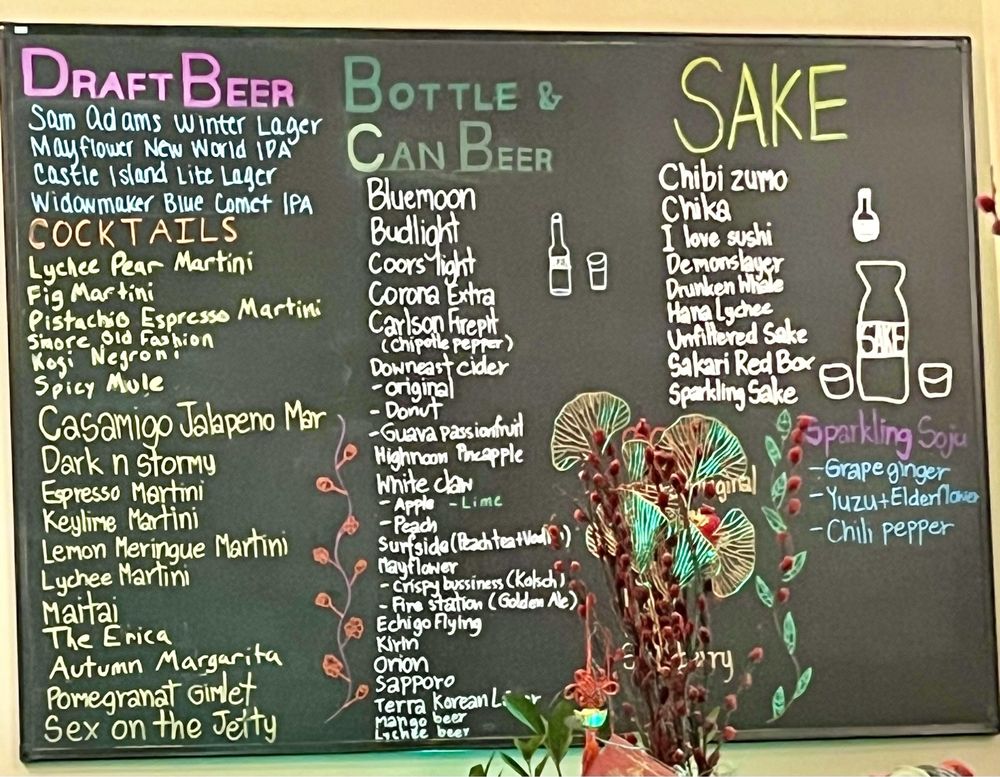 DRAFT BEER
Sam Adams Winter Lager
Mayflower New World IPA
Castle Island Lite Lager
Widowmaker Blue Comet IPA
COCKTAILS
Lychee Pear Martini
Fig Martini
Pistachio Espresso Martini
Smore Old Fashion
Kogi Negroni
Spicy Mule
Casamigo Jalapeno Mar
Dark n stormy
Espresso Martini
Keylime Martini
Lemon Meringue Martini
Lychee Martini
Maitai
The Erica
Autumn Margarita
Pomegranat Gimlet
Sex on the Jetty
BOTTLE &
CAN BEER
Bluemoon
Budlight
Coors light
Corona Extra
Carlson Firepit
(Chipotle pepper)
Downeast cider
- original
- Donut
- Guava passionfruit
Highnoon Pineapple
White claw
- Apple - Lime
- Peach
Surfsida (Peach tea + Vod
Mayflower
- Crispy bussiness (Kolsch)
- Fire station (Golden Ale)
Echigo Flying
Kirin
Orion
Sapporo
Terra Korean
Mango beer
Lychee beer
SAKE
Chibi zumo
Chika
I love sushi
Demonslayer
Drunken Whale
Hana Lychee
Unfiltered Sake
Sakari Red Box
Sparkling Sake
SAKE
Sparkling Soju
- Grape ginger
- Yuzu + Elderflower
- Chili pepper